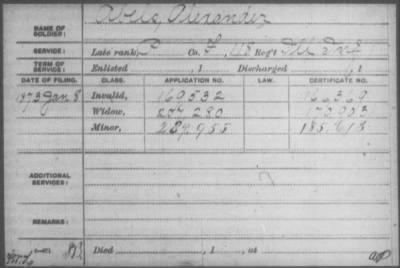 NAME OF SOLDIER: Abele, Alexander
SERVICE: Late rank, Co. F, 48 Reg't Ill Inf
TERM OF SERVICE: Enlisted , 1 Discharged , 1
DATE OF FILING. CLASS. APPLICATION NO. LAW. CERTIFICATE NO.
1873 Jan 8 Invalid, 169532
Widow, 207.280
Minor, 289.955
ADDITIONAL SERVICES:
REMARKS:
Died , 1 , at